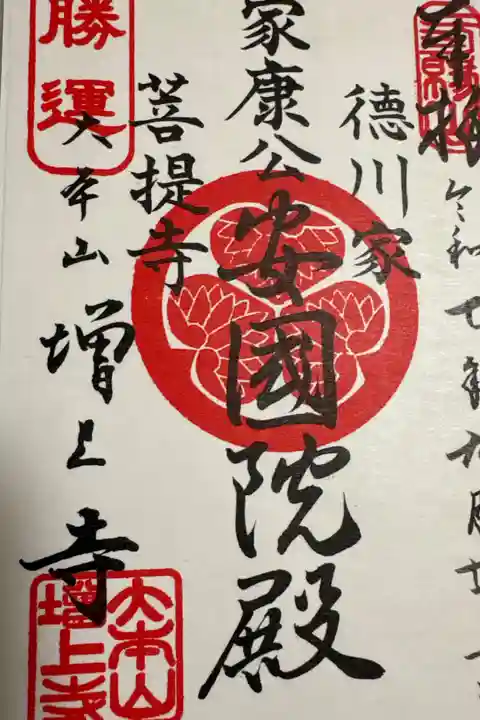 奉拝
令和七年九月廿
徳川家
家康公 安國院殿
菩提寺
勝運
大本山 増上寺
大本山
増上寺